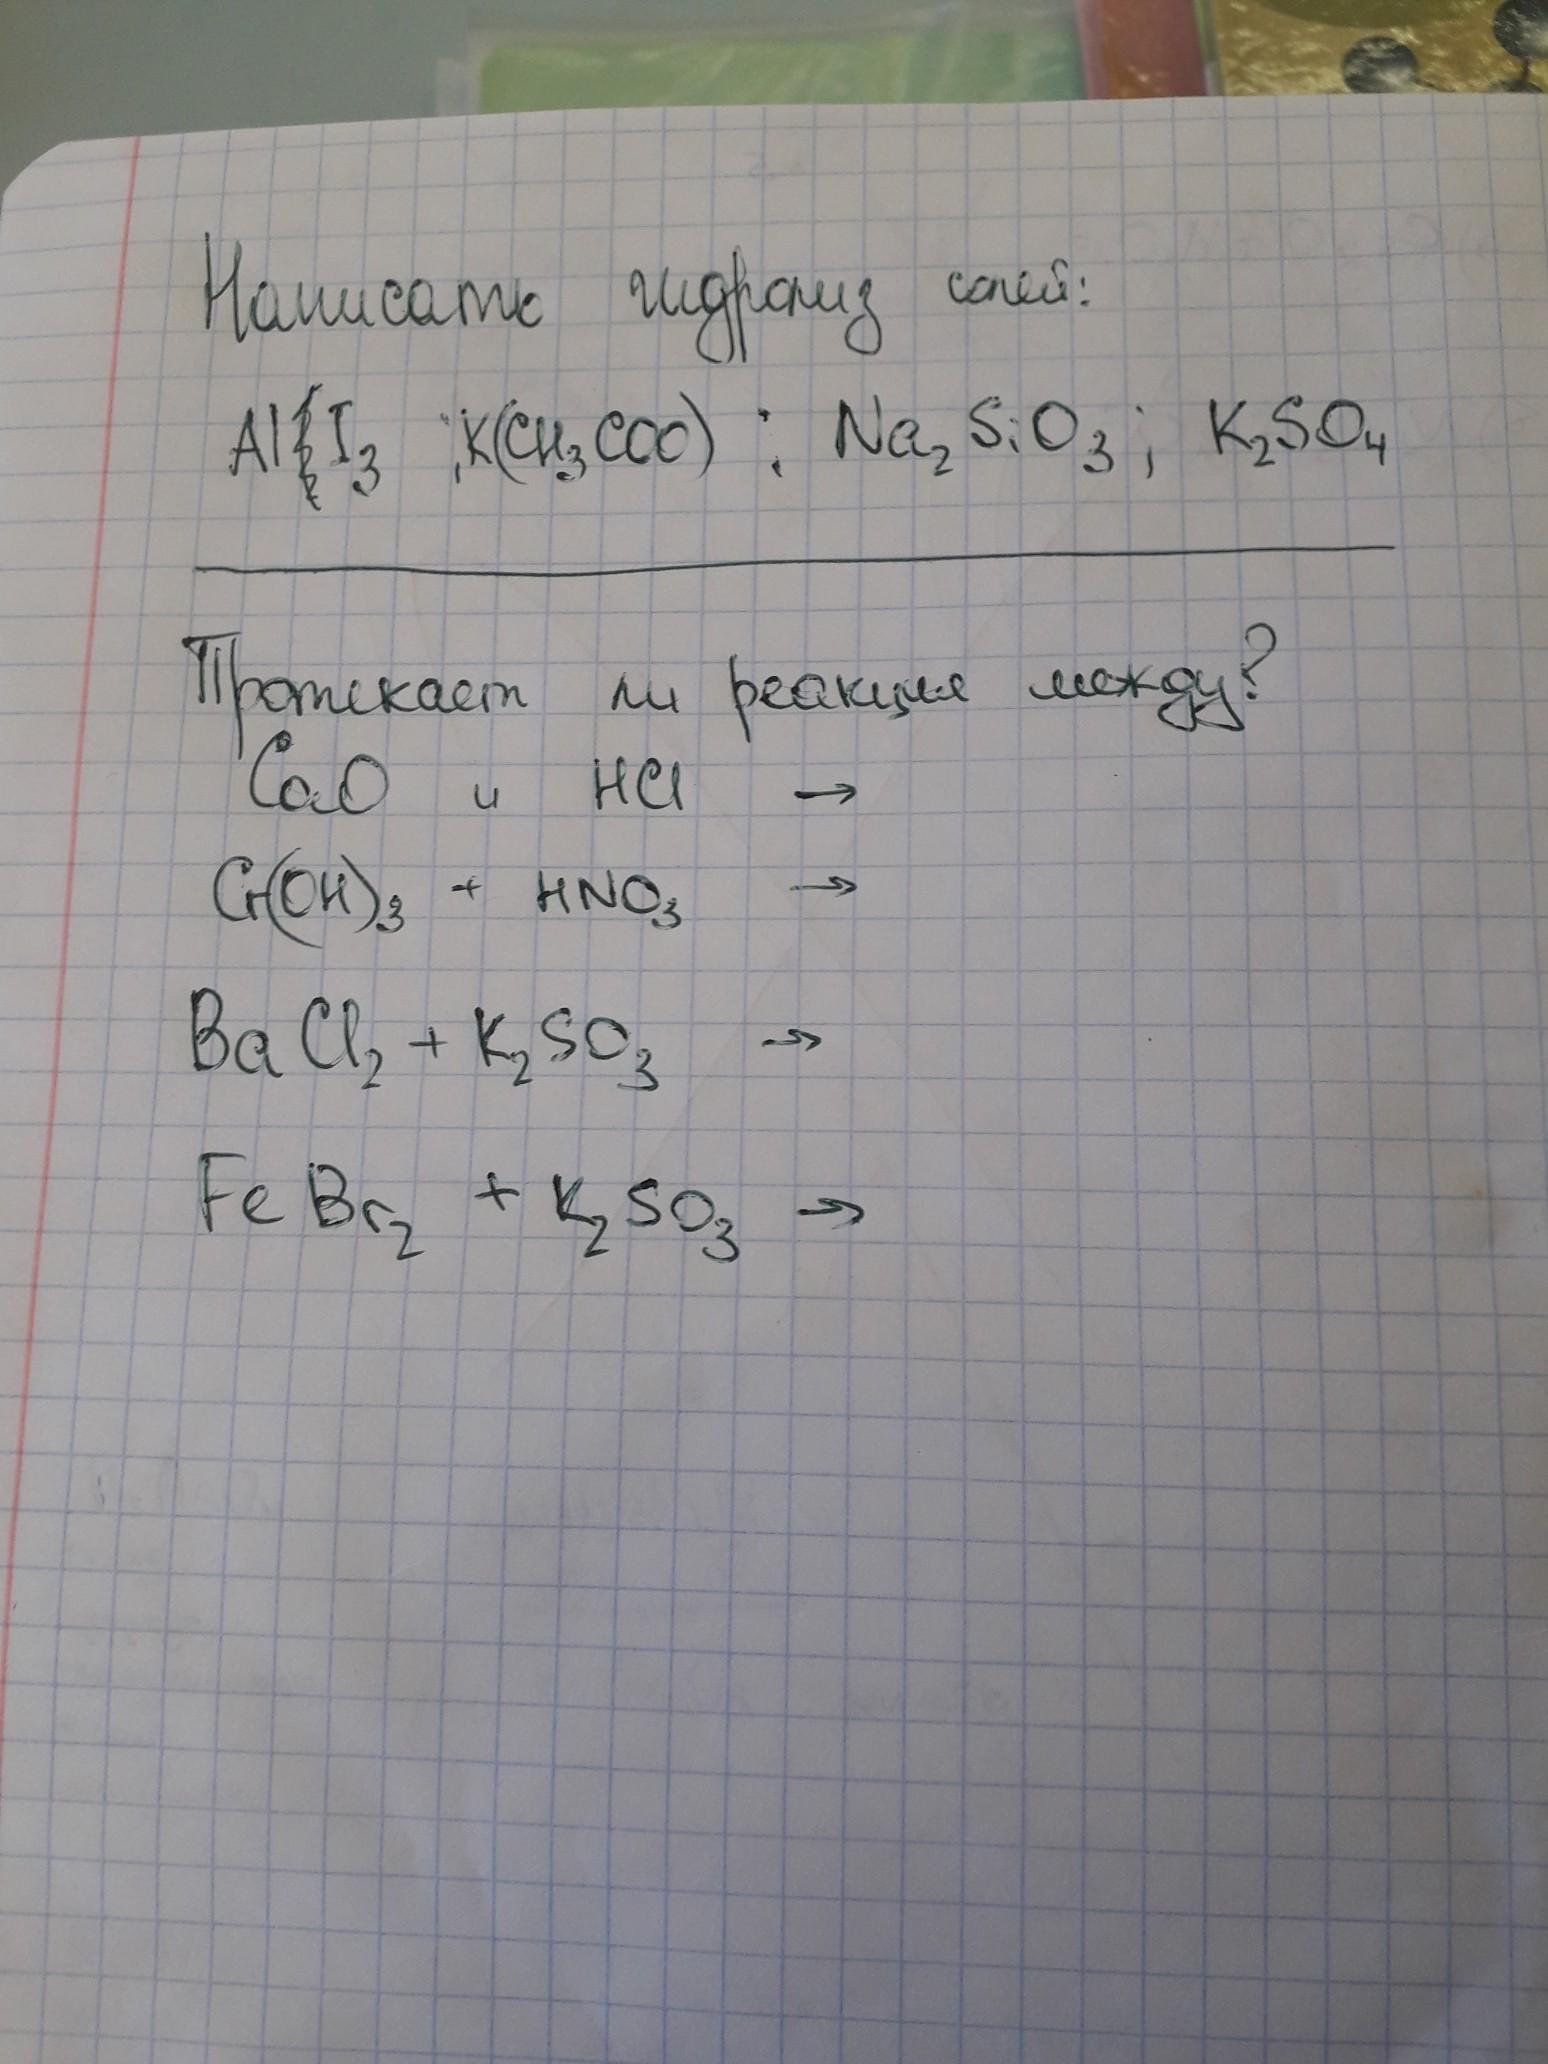 Написать гидролиз солей:
AlI₃ ; K(CH₃COO) ; Na₂SiO₃ ; K₂SO₄
Протекает ли реакция между?
CaO и HCl →
Cr(OH)₃ + HNO₃ →
BaCl₂ + K₂SO₃ →
FeBr₂ + K₂SO₃ →